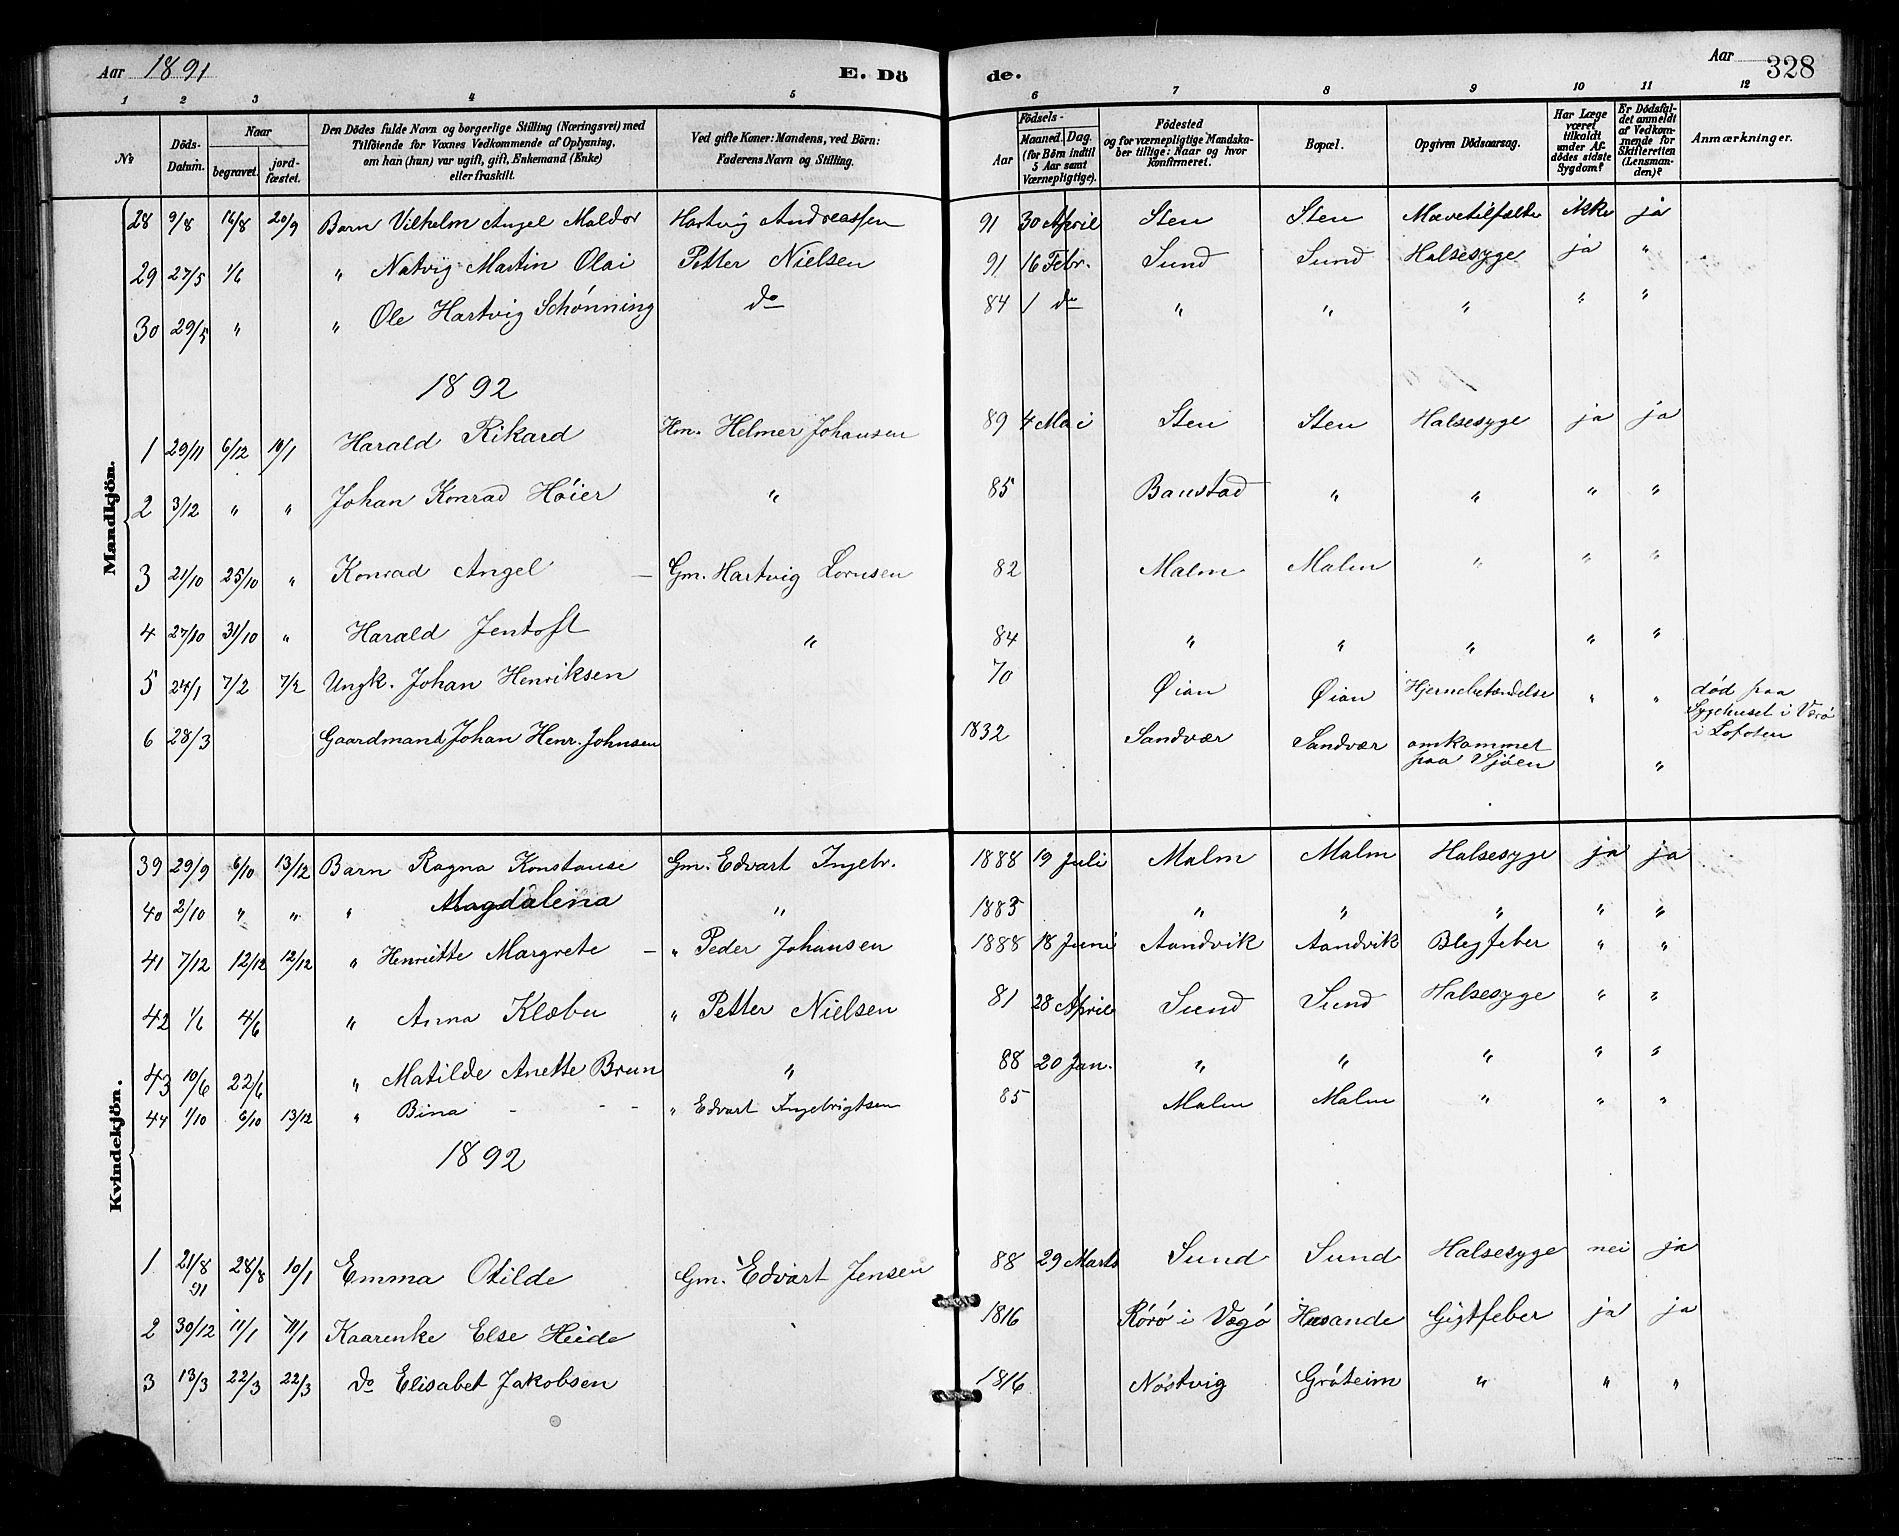 Aar 1891 E. Dö de. Aar 328
1 2 3 4 5 6 7 8 9 10 11 12
No. Döds-Datum. Naar begravet. jord-fæstet. Den Dödes fulde Navn og borgerlige Stilling (Næringsvei) med Tilföiende for Voxnes Vedkommende af Oplysning, om han (hun) var ugift, gift, Enkemand (Enke) eller fraskilt. Ved gifte Koner: Mandens, ved Börn: Faderens Navn og Stilling. Födsels- Aar Maaned. Dag. (for Börn indtil 5 Aar samt Værnepligtige). Födested og for værnepligtige Mandskaber tillige: Naar og hvor konfirmeret. Bopæl. Opgiven Dödsaarsag. Har Læge været tilkaldt under Afdödes sidste Sygdom? Er Dödsfaldet anmeldt af Vedkommende for Skifteretten (Lensmanden)? Anmærkninger.
Mandkjön.
28 9/8 16/8 20/9 Barn Vilhelm Angel Maldor Hartvig Andreassen 91 30 April Sten Sten Mavetilfælde ikke ja
29 27/5 1/6 " Natvig Martin Olai Petter Nielsen 91 16 Febr. Sund Sund Halsesyge ja "
30 29/5 " " Ole Hartvig Schönning do 84 1 do " " " " "
1892
1 29/11 6/12 10/1 Harald Rikard Hm. Helmer Johansen 89 4 Mai Sten Sten Halsesyge ja ja
2 3/12 " " Johan Konrad Höier " 85 Baustad " " " "
3 21/10 25/10 " Konrad Angel – Gm. Hartvig Lornsen 82 Malm Malm " " "
4 27/10 31/10 " Harald Jentoft " 84 " " " " "
5 24/1 7/2 7/2 Ungk. Johan Henriksen 70 Øian Øian Hjernebetændelse " " död paa Sygehuset i Værö i Lofoten
6 28/3 Gaardmand Johan Henr. Johnsen 1832 Sandvær Sandvær omkommet paa Sjöen "
Kvindekjön.
39 29/9 6/10 13/12 Barn Ragna Konstanse Gm. Edvart Ingebr. 1888 19 Juli Malm Malm Halsesyge ja ja
40 2/10 " " " Magdalena " 1883 " " " " "
41 7/12 12/12 12/12 " Henriette Margrete – " Peder Johansen 1888 18 Juni Aandvik Aandvik Blegfeber " "
42 1/6 4/6 " Anna Klæbu " Petter Nielsen 81 28 April Sund Sund Halsesyge " "
43 10/6 22/6 " Matilde Anette Brun " 88 20 Jan. " " " " "
44 1/10 6/10 13/12 " Bina - - - " Edvart Ingebrigtsen 85 Malm Malm " " "
1892
1 21/8 91 28/8 10/1 Emma Otilde Gm. Edvart Jensen 88 29 Marts Sund Sund Halsesyge nei ja
2 30/12 11/1 11/1 Kaarenke Else Heide 1816 Rörö i Vægö Husande Gigtfeber ja ja
3 13/3 22/3 22/3 do Elisabet Jakobsen 1816 Nöstvig Gröteim " " "